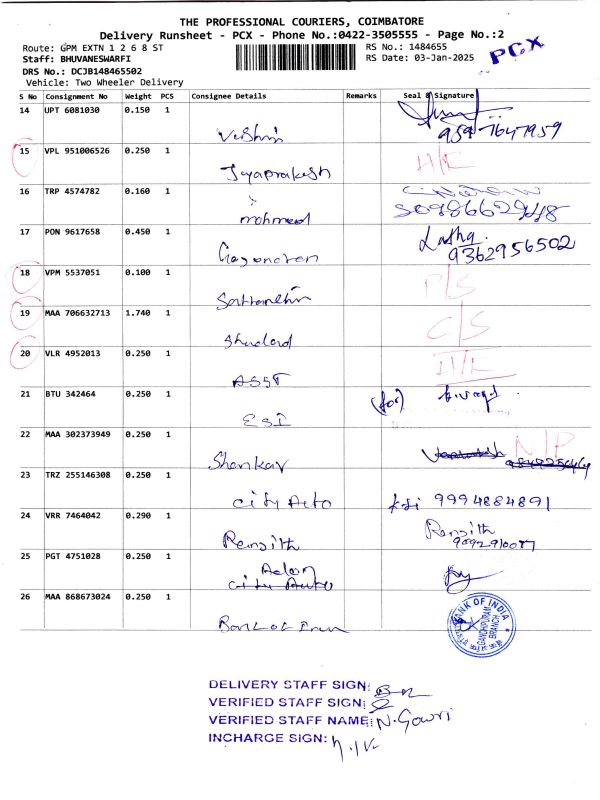 THE PROFESSIONAL COURIERS, COIMBATORE
Delivery Runsheet - PCX - Phone No.:0422-3505555 - Page No.:2
Route: GPM EXTN 1 2 6 8 ST
RS No.: 1484655
PCX
Staff: BHUVANESWARFI
RS Date: 03-Jan-2025
DRS No.: DCJB148465502
Vehicle: Two Wheeler Delivery
S No Consignment No Weight PCS Consignee Details Remarks Seal & Signature
14 UPT 6081030 0.150 1
15 VPL 951006526 0.250 1 H/R
Jayaprakesh
16 TRP 4574782 0.160 1
mohmed
17 PON 9617658 0.450 1 Latha
9362956502
18 VPM 5537051 0.100 1 P/S
19 MAA 706632713 1.740 1 C/S
20 VLR 4952013 0.250 1 H/R
ASST
21 BTU 342464 0.250 1 (for)
ESI
22 MAA 302373949 0.250 1 N/P
Shankar
23 TRZ 255146308 0.250 1
city Auto 9994884891
24 VRR 7464042 0.290 1 Rensith
Rensith
25 PGT 4751028 0.250 1
city Auto
26 MAA 868673024 0.250 1
BANK OF INDIA
GANDHIPURAM
BRANCH
DELIVERY STAFF SIGN:
VERIFIED STAFF SIGN:
VERIFIED STAFF NAME: N. Gowri
INCHARGE SIGN: